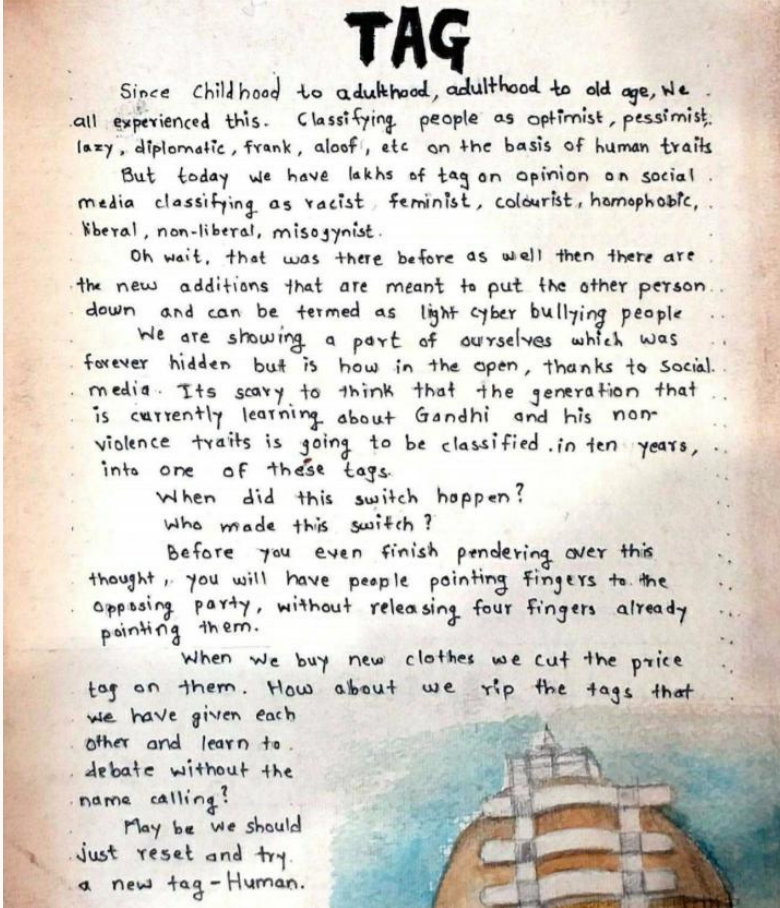 TAG
Since Childhood to adulthood, adulthood to old age, We
all experienced this. Classifying people as optimist, pessimist,
lazy, diplomatic, frank, aloof, etc on the basis of human traits
But today we have lakhs of tag on opinion on social
media classifying as racist, feminist, colourist, homophobic,
liberal, non-liberal, misogynist.
Oh wait, that was there before as well then there are
the new additions that are meant to put the other person
down and can be termed as light cyber bullying people
We are showing a part of ourselves which was
forever hidden but is now in the open, thanks to social
media. Its scary to think that the generation that
is currently learning about Gandhi and his non-
violence traits is going to be classified in ten years,
into one of these tags.
When did this switch happen?
Who made this switch?
Before you even finish pendering over this
thought, you will have people pointing fingers to the
opposing party, without releasing four fingers already
pointing them.
When we buy new clothes we cut the price
tag on them. How about we rip the tags that
we have given each
other and learn to
debate without the
name calling?
May be we should
just reset and try
a new tag - Human.